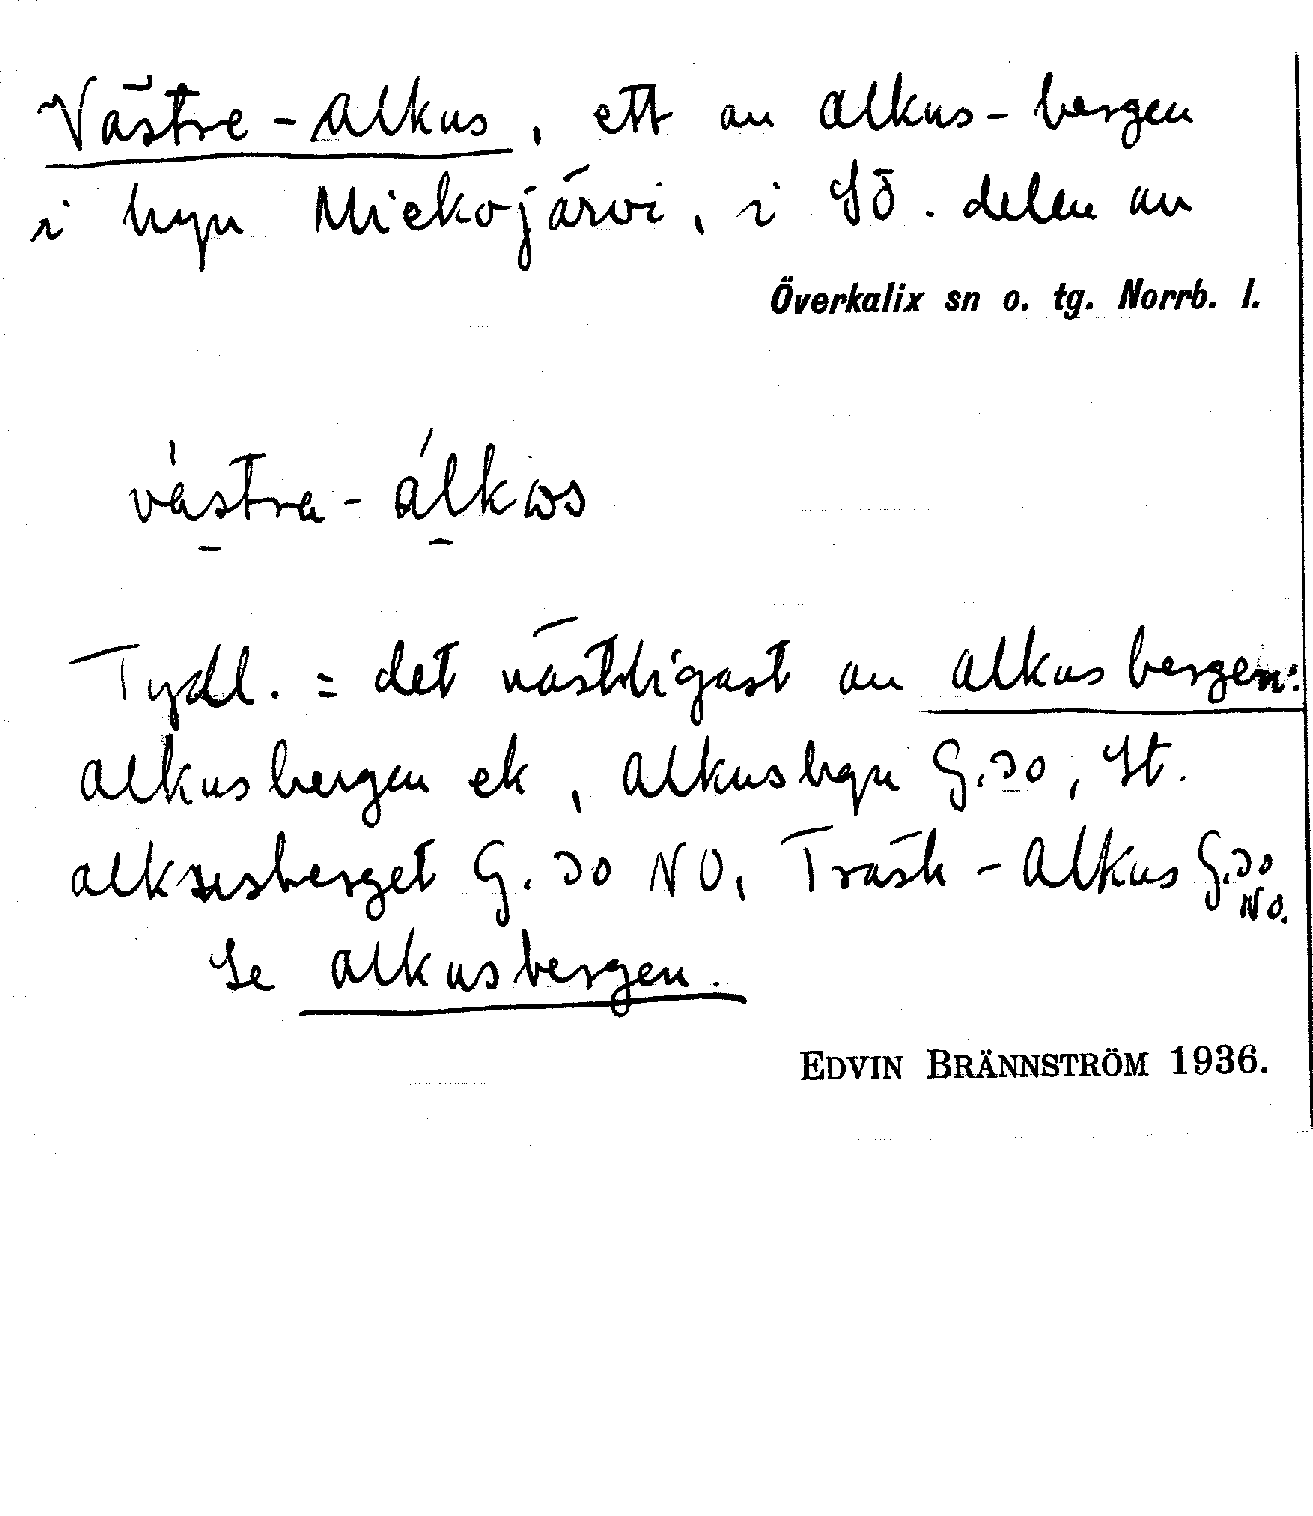 Västre-Alkus, ett av Alkus-bergen
i byn Miekojärvi, i SÖ. delen av
Överkalix sn o. tg. Norrb. l.
västra-álkɷs
Tydl. = det västligast av Alkusbergen:
Alkusbergen ek, Alkusbyn G.30, St.
Alkusberget G. 30 NO, Träsk-Alkus G.30
NO.
Se Alkusbergen.
EDVIN BRÄNNSTRÖM 1936.